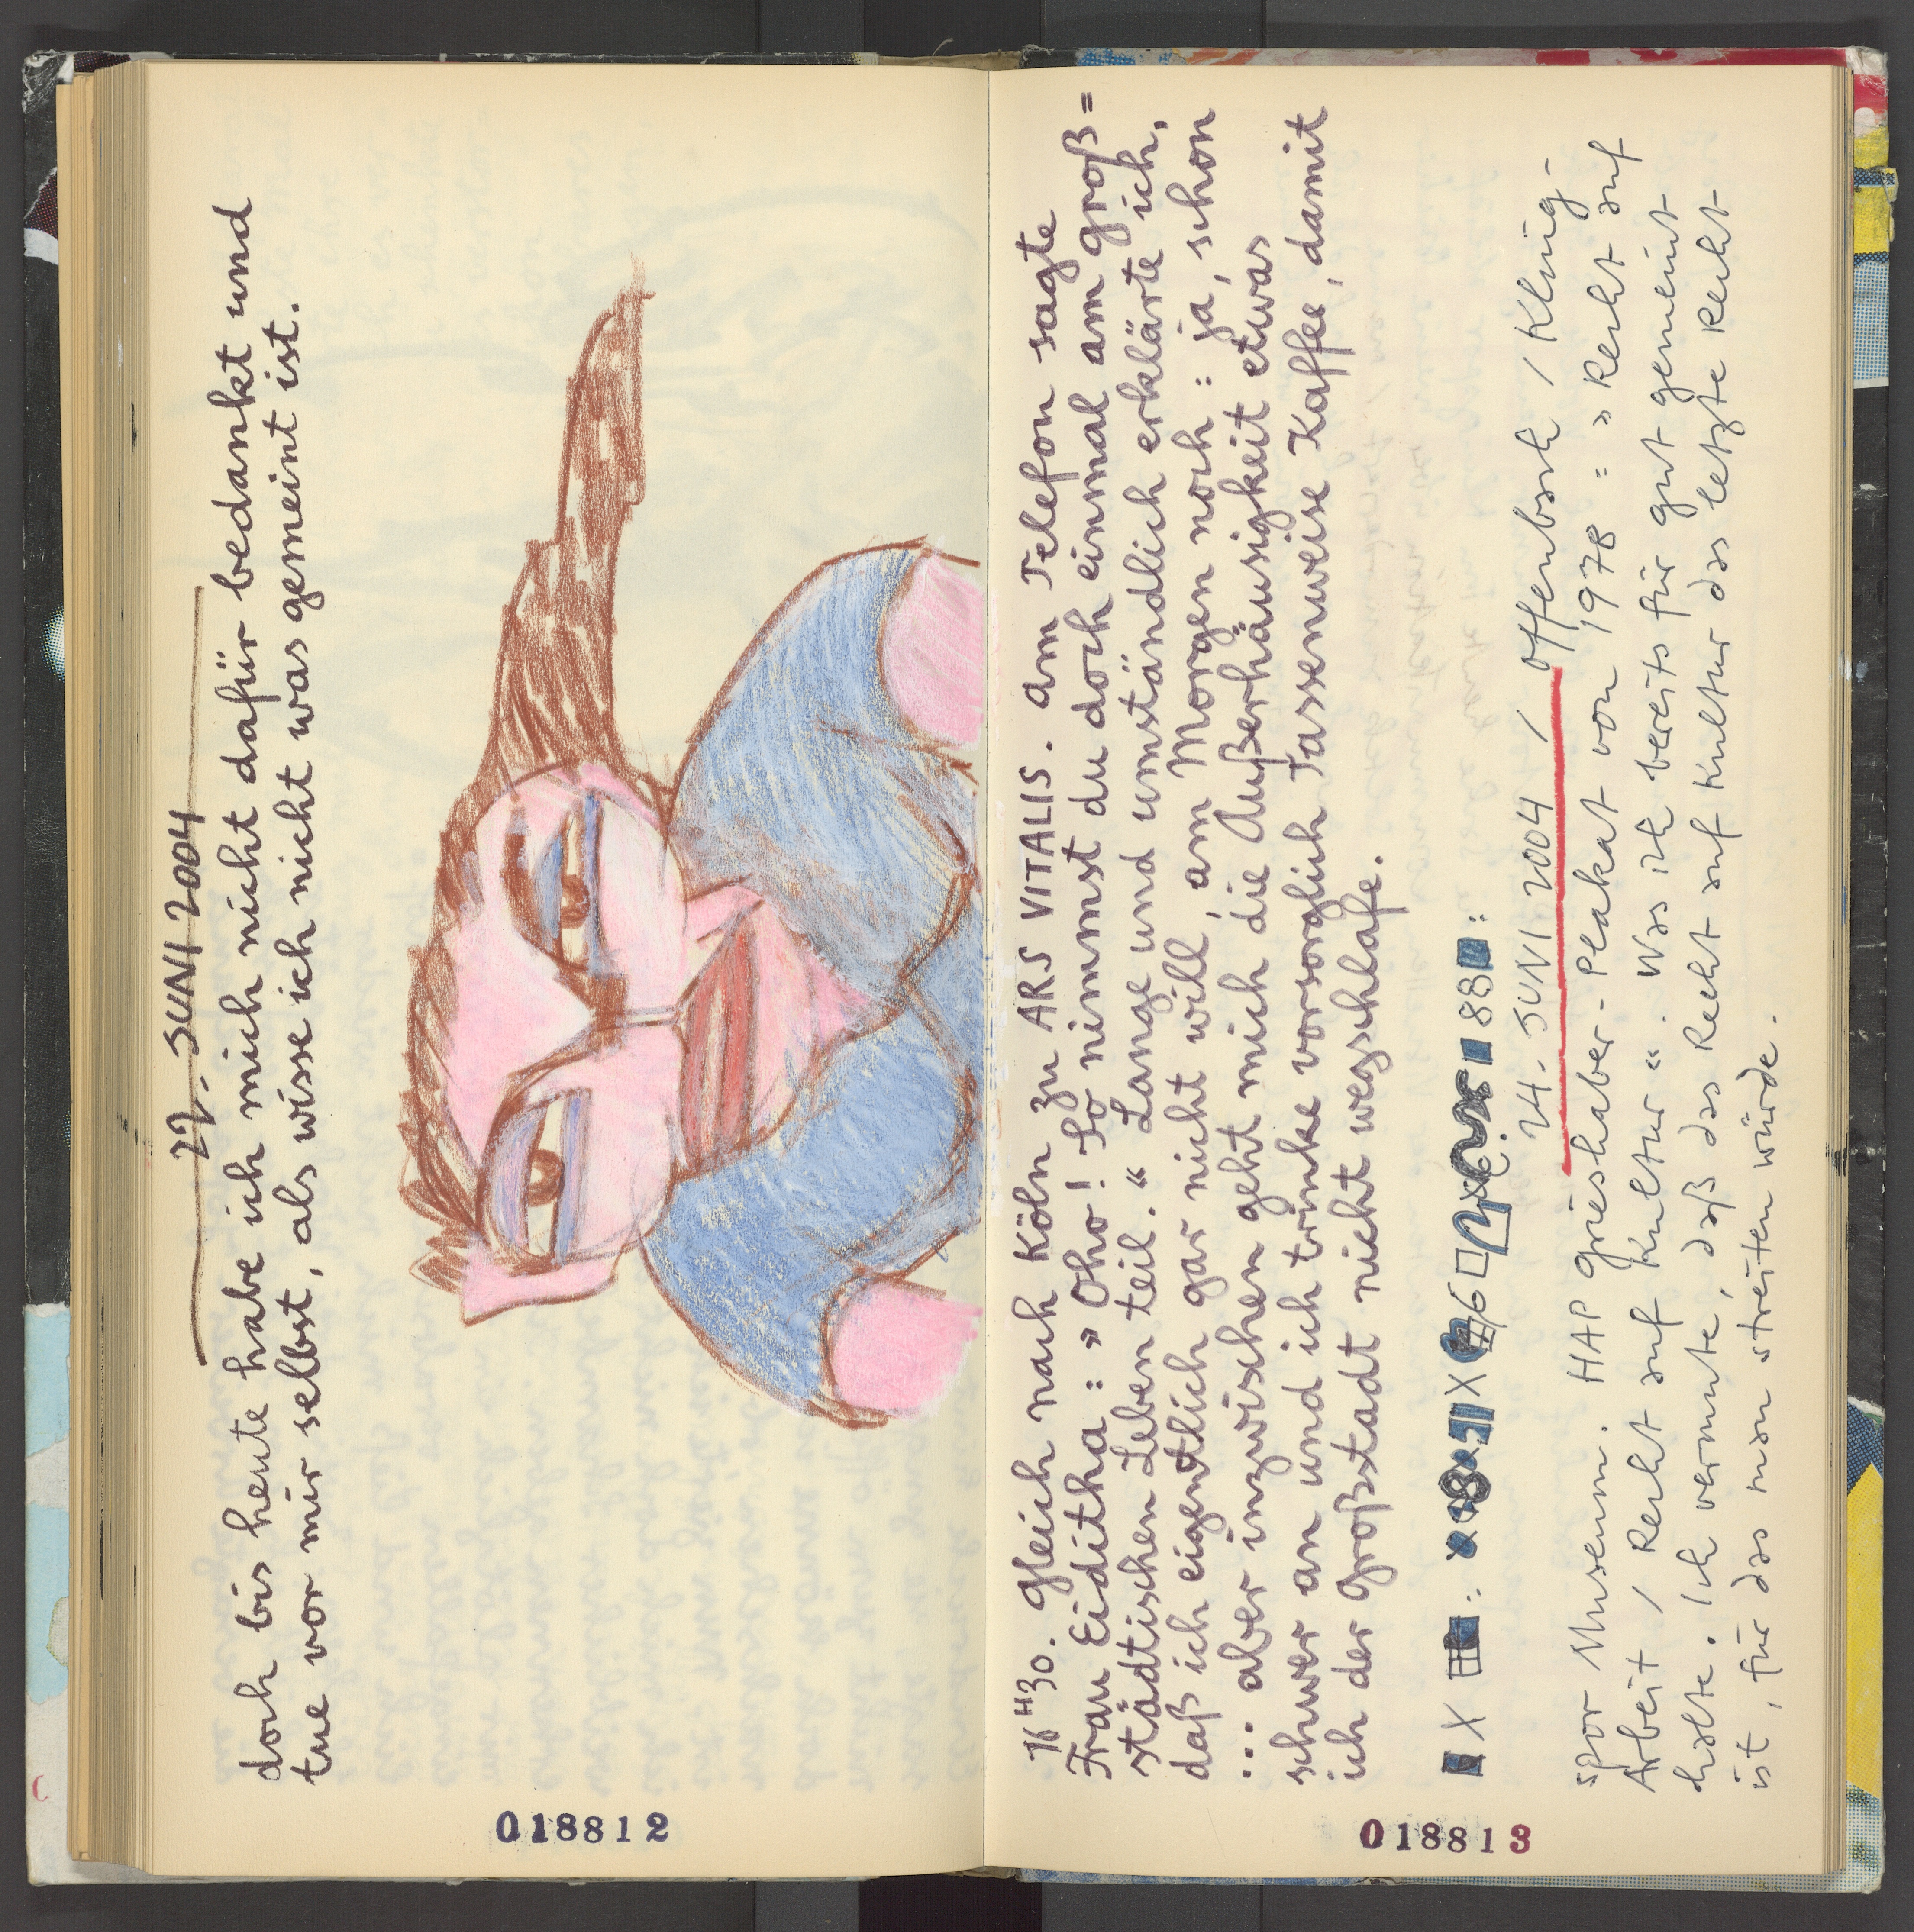 22. JUNI 2004
doch bis heute habe ich mich nicht dafür bedankt und
tue vor mir selbst, als wisse ich nicht was gemeint ist.
018812
16H30. Gleich nach Köln zu ARS VITALIS. Am Telefon sagte
Frau Eiditha: » Oho! So nimmst du doch einmal am groß=
städtischen Leben teil. “ Lange und umständlich erkläre ich,
daß ich eigentlich gar nicht will, am Morgen noch: ja, schon
... aber inzwischen geht mich die Außerhäusigkeit etwas
schwer an und ich trinke vorsorglich tassenweise Kaffee, damit
ich der Großstadt nicht wegschlafe.
24. JUNI 2004 / Offenbach / Kling-
spor Museum. HAP Grieshaber-Plakat von 1978: » Recht auf
Arbeit / Recht auf Kultur “. Was ich bereits für gut gemeint
halte. Ich vermute, daß das Recht auf Kultur das letzte Recht
ist, für das man streiten würde.
018813